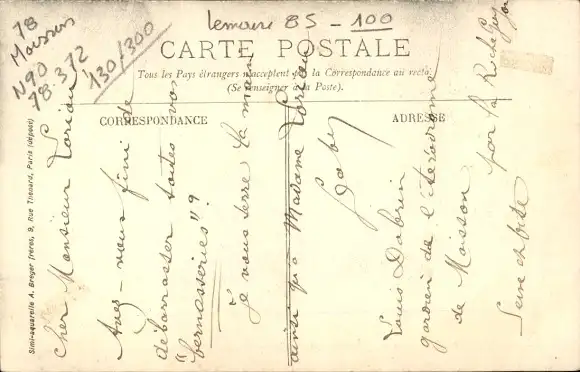 78
Moisson
N90
78.372
130/300
Lemaire 85 - 100
CARTE POSTALE
Tous les Pays étrangers n'acceptent pas la Correspondance au recto.
(Se renseigner à la Poste).
CORRESPONDANCE
ADRESSE
Simili-aquarelle A. Breger frères, 9, Rue Thénard, Paris (déposé)
Cher Monsieur Lorion
Avez-vous fini de
débarrasser toutes vos
"bernasseries"?
Je vous serre la main
ainsi qu'à Madame Lorion
Gaby
Louis Dabrin
gardien de l'aérodrome
de Moisson
par la Roche Guyon
Seine et Oise